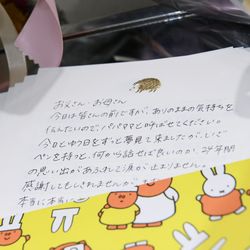 お父さん・お母さん
今日は皆さんの前ですが、ありのままの気持ちを
伝えたいので、パパママと呼ばせてください。
今日という日をずっと夢見て来ましたが、いざ
ペンを持つと、何から話せば良いのか、24年間
の思い出があふれて涙が止まりません。
感謝してもしきれませんが
本当に本当に